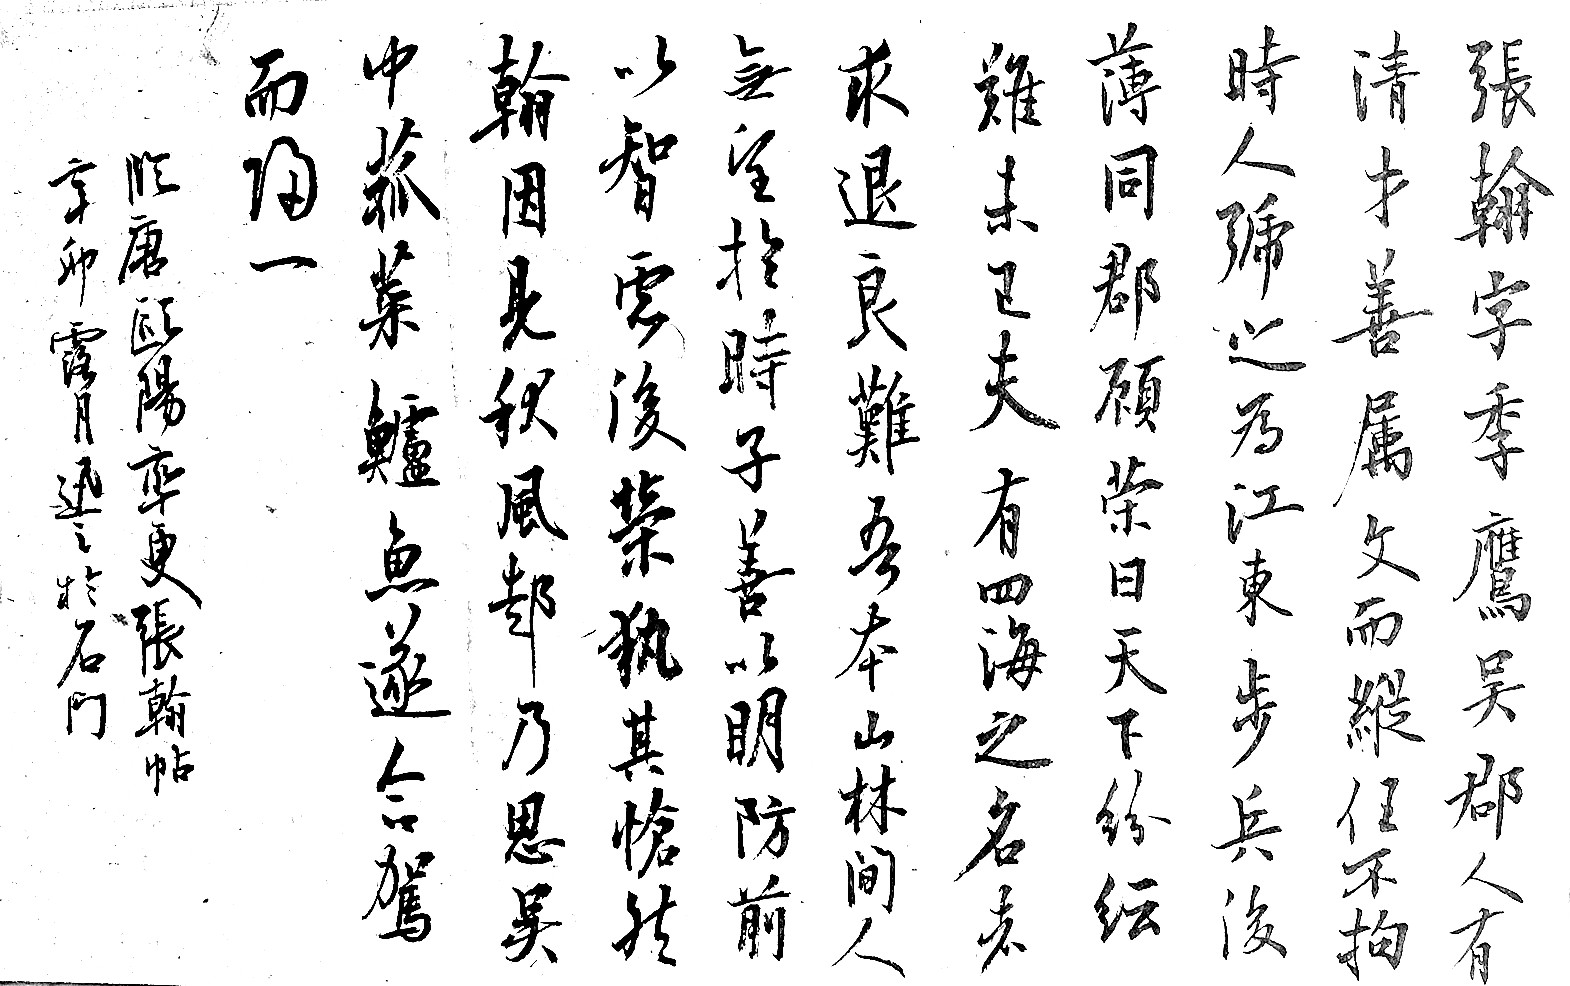 張翰字季鷹吳郡人有
清才善属文而縱任不拘
時人號之為江東步兵後
薄同郡顧榮曰天下紛紜
難未已夫有四海之名者
求退良難吾本山林間人
無望於時子善以明防前
以智慮後榮執其愴然
翰因見秋風起乃思吳
中菰菜鱸魚遂命駕
而歸一
臨唐歐陽率更張翰帖
辛卯霜月迅之於石門